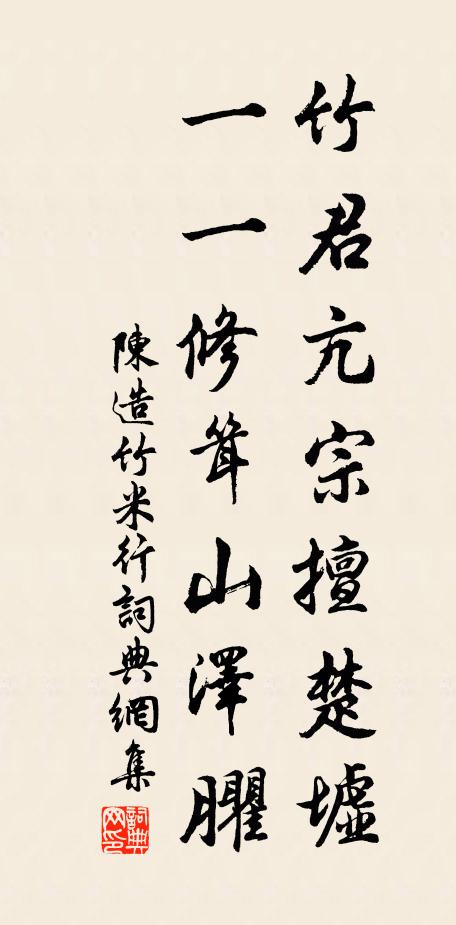 竹君亢宗擅楚墟
一一修聳山澤臞
陳造竹米行詞典網集
詞典网印